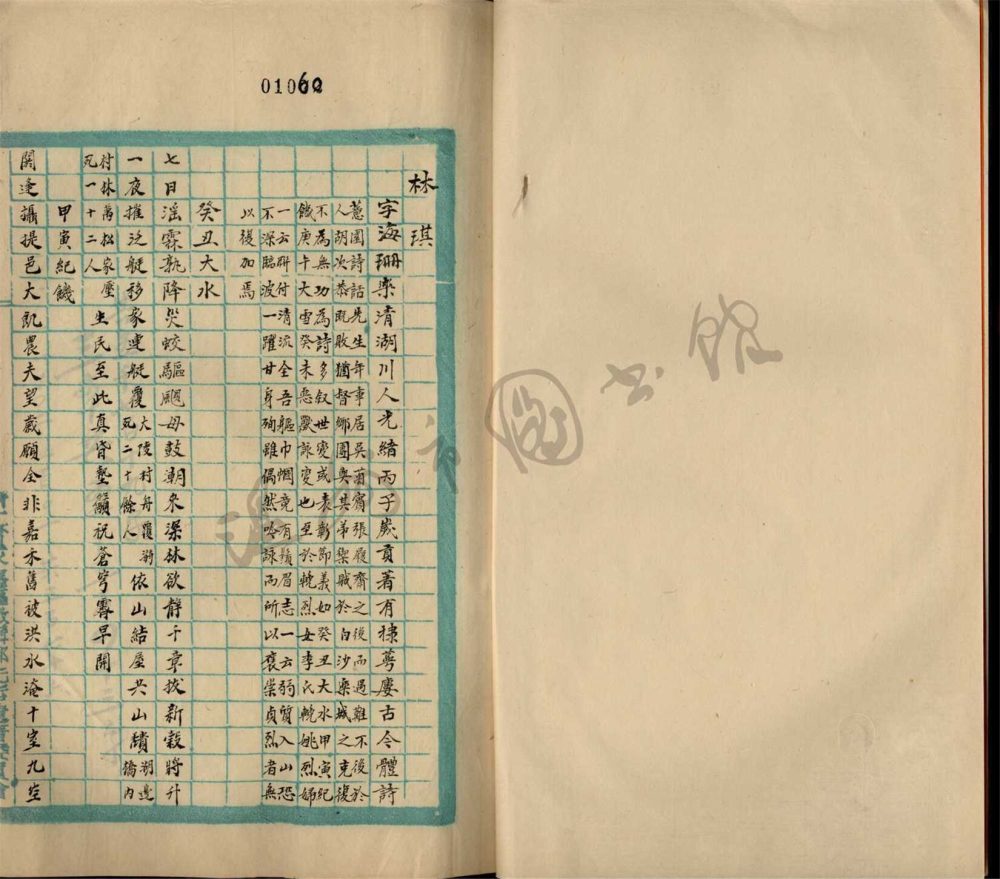 林琪
字海珊樂清湖川人光緒丙子歲貢著有棣萼廔古今體詩
蕙園詩話先生年事居吳菌賓張履齋之後而遇難不後於
人胡次恭既敗猶督鄉團與其弟禦賊於白沙樂城之克復
不為無功為詩多叙世變或表彰節義如癸丑大水甲寅紀
餓庚午大雪癸未惡獸詠變也至於輓烈女李氏輓姚烈婦
一云研付清流全吾軀巾幗竟有鬚眉志一云弱質入山恐
不深臨波一躍甘身殉雖偶然吟詠而所以褒崇貞烈者無
以復加焉
癸丑大水
七日滛霖孰降災蛟驅颶母鼓潮來深林欲静千章拔新穀將升
一夜摧泛艇移家連艇覆大陡村舟覆溺死二十餘人依山結屋共山頹湖邊橋内
村林萬松家壓死一十二人生民至此真昏墊籲祝蒼穹霽早開
甲寅紀饑
閼逢攝提邑大飢農夫望歲願全非嘉禾舊被洪水淹十室九空
市圖书館